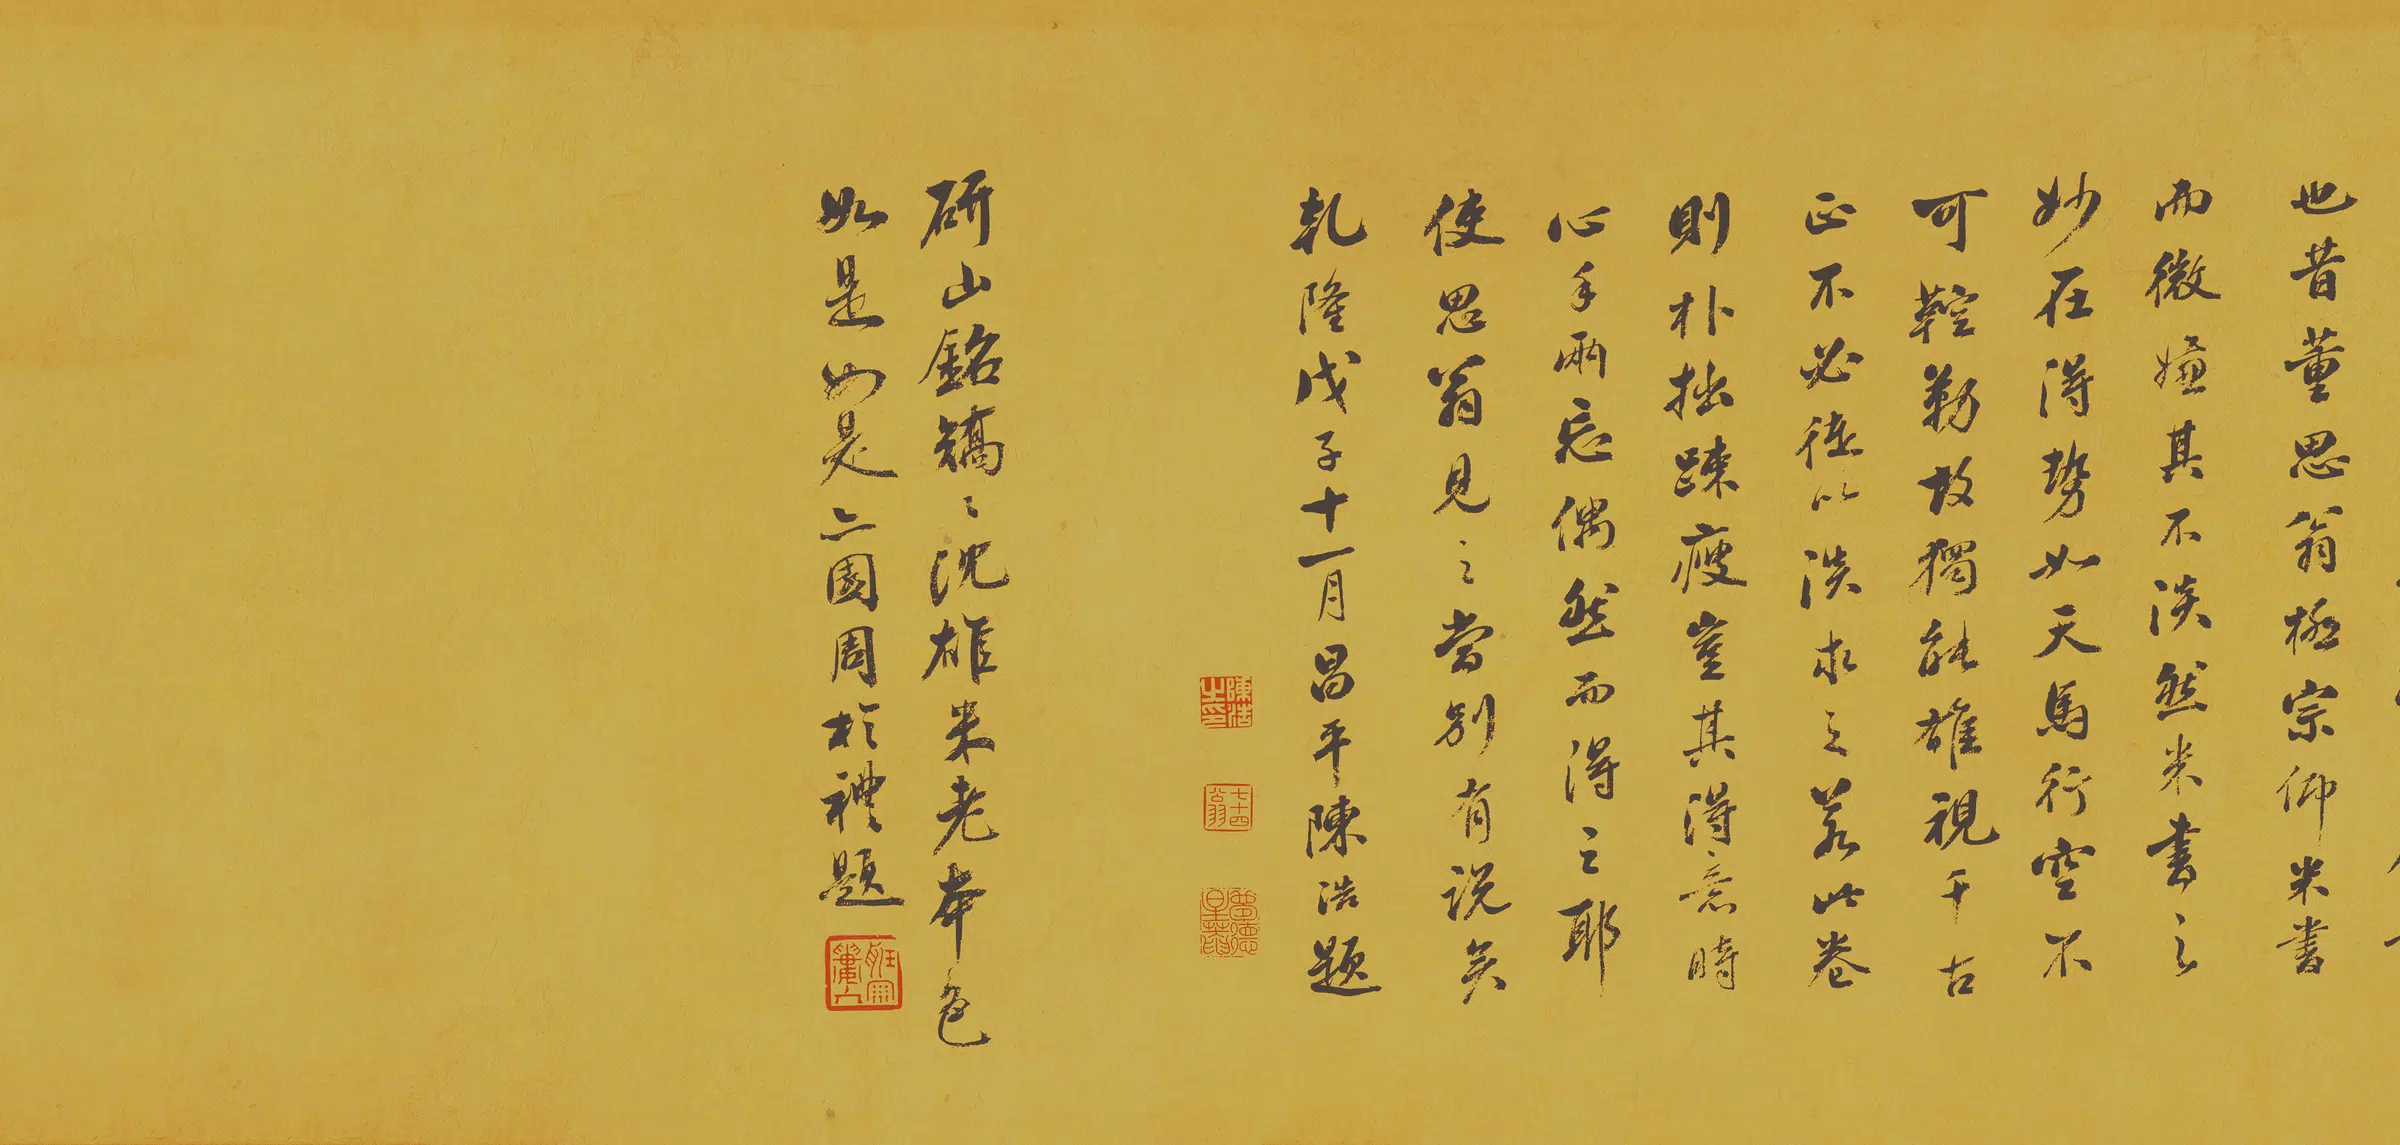 也昔董思翁極宗仰米書
而微嫌其不淡然米書之
妙在得勢如天馬行空不
可鞚勒故獨能雄視千古
正不必徒以淡求之若此卷
則朴拙疎瘦豈其得意時
心手兩忘偶然而得之耶
使思翁見之當別有說矣
乾隆戊子十一月昌平陳浩題
陳浩之印
七十四公翁
研山銘矯〻沈雄米老本色
如是如是六園周於禮題